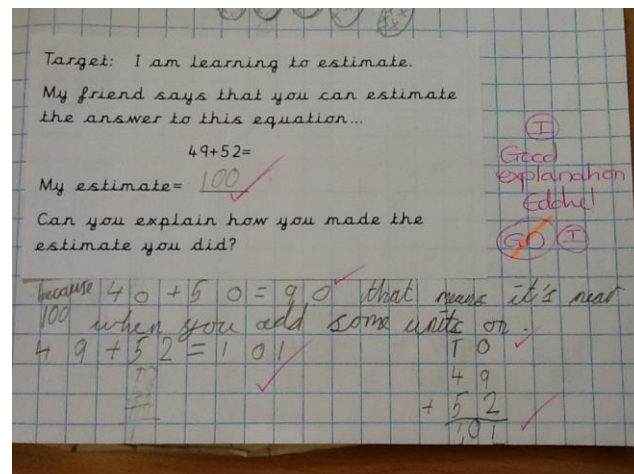 Target: I am learning to estimate.
My friend says that you can estimate
the answer to this equation...
49+52=
My estimate= 100
Can you explain how you made the
estimate you did?
I
Good
explanation
GD I
because 40+50=90 that means it's near
100 when you add some units on.
49+52=101
T O
49
+ 52
101